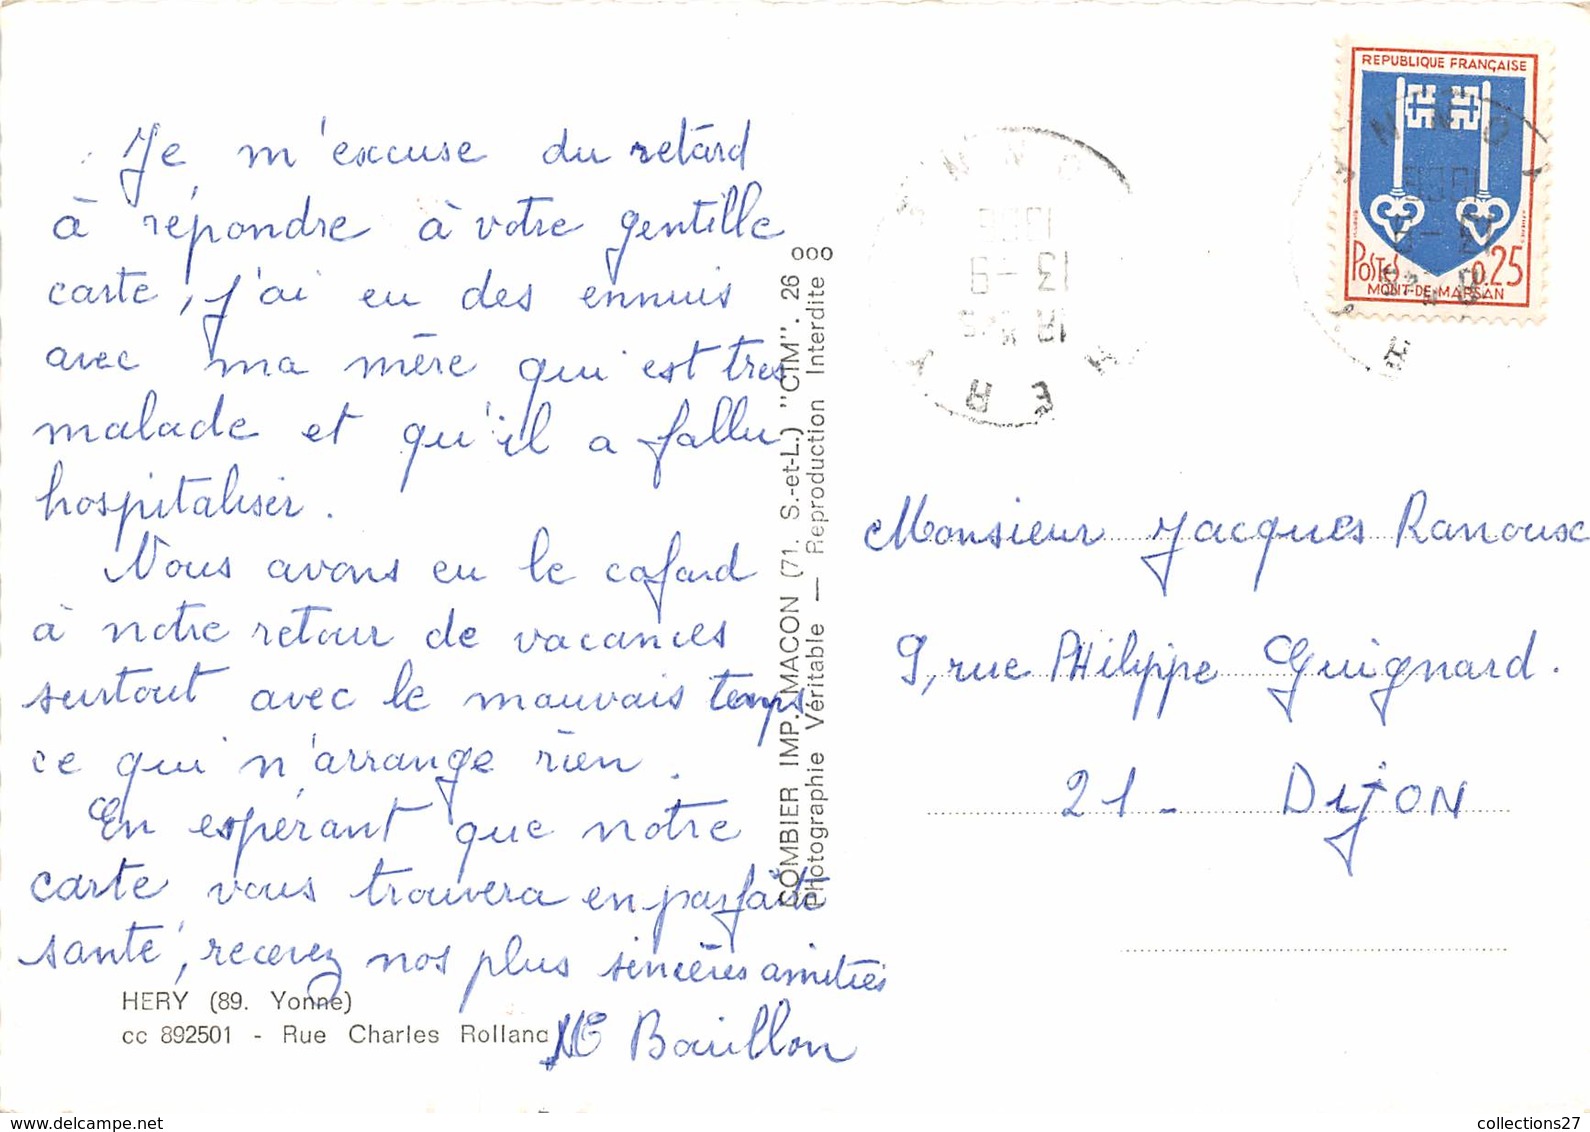 Je m'excuse du retard
à répondre à votre gentille
carte, j'ai eu des ennuis
avec ma mère qui est tres
malade et qu'il a fallu
hospitaliser.
Nous avons eu le cafard
à notre retour de vacances
surtout avec le mauvais temps
ce qui n'arrange rien.
En espérant que notre
carte vous trouvera en parfaite
santé, recevez nos plus sincères amitiés
Bouillon
HERY (89. Yonne)
cc 892501 - Rue Charles Rolland
COMBIER IMP. MACON (71. S.-et-L.) "CIM". 26 ooo
Photographie Véritable — Reproduction Interdite
HERY
YONNE
13-9
1966
REPUBLIQUE FRANÇAISE
POSTES 0.25
MONT-DE-MARSAN
Monsieur Jacques Ranoux
9, rue PHilippe Guignard.
21 - DIJON
delcampe.net
collections27